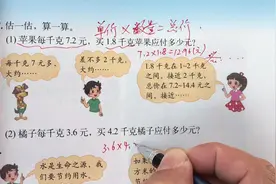 估一估,算一算。
单价×数量=总价
(1) 苹果每千克7.2元,买1.8千克苹果应付多少元?
7.2×1.8=12.96(元)
每千克7元多,
大约……
差不多2千克,
大约……
1.8千克在1~2千克
之间,接近2千克,
总价在7.2~14.4元之
间,接近……
(2) 橘子每千克3.6元,买4.2千克橘子应付多少元?
3.6×4.
水是生命之源,我
们要节约用水。
如果
方